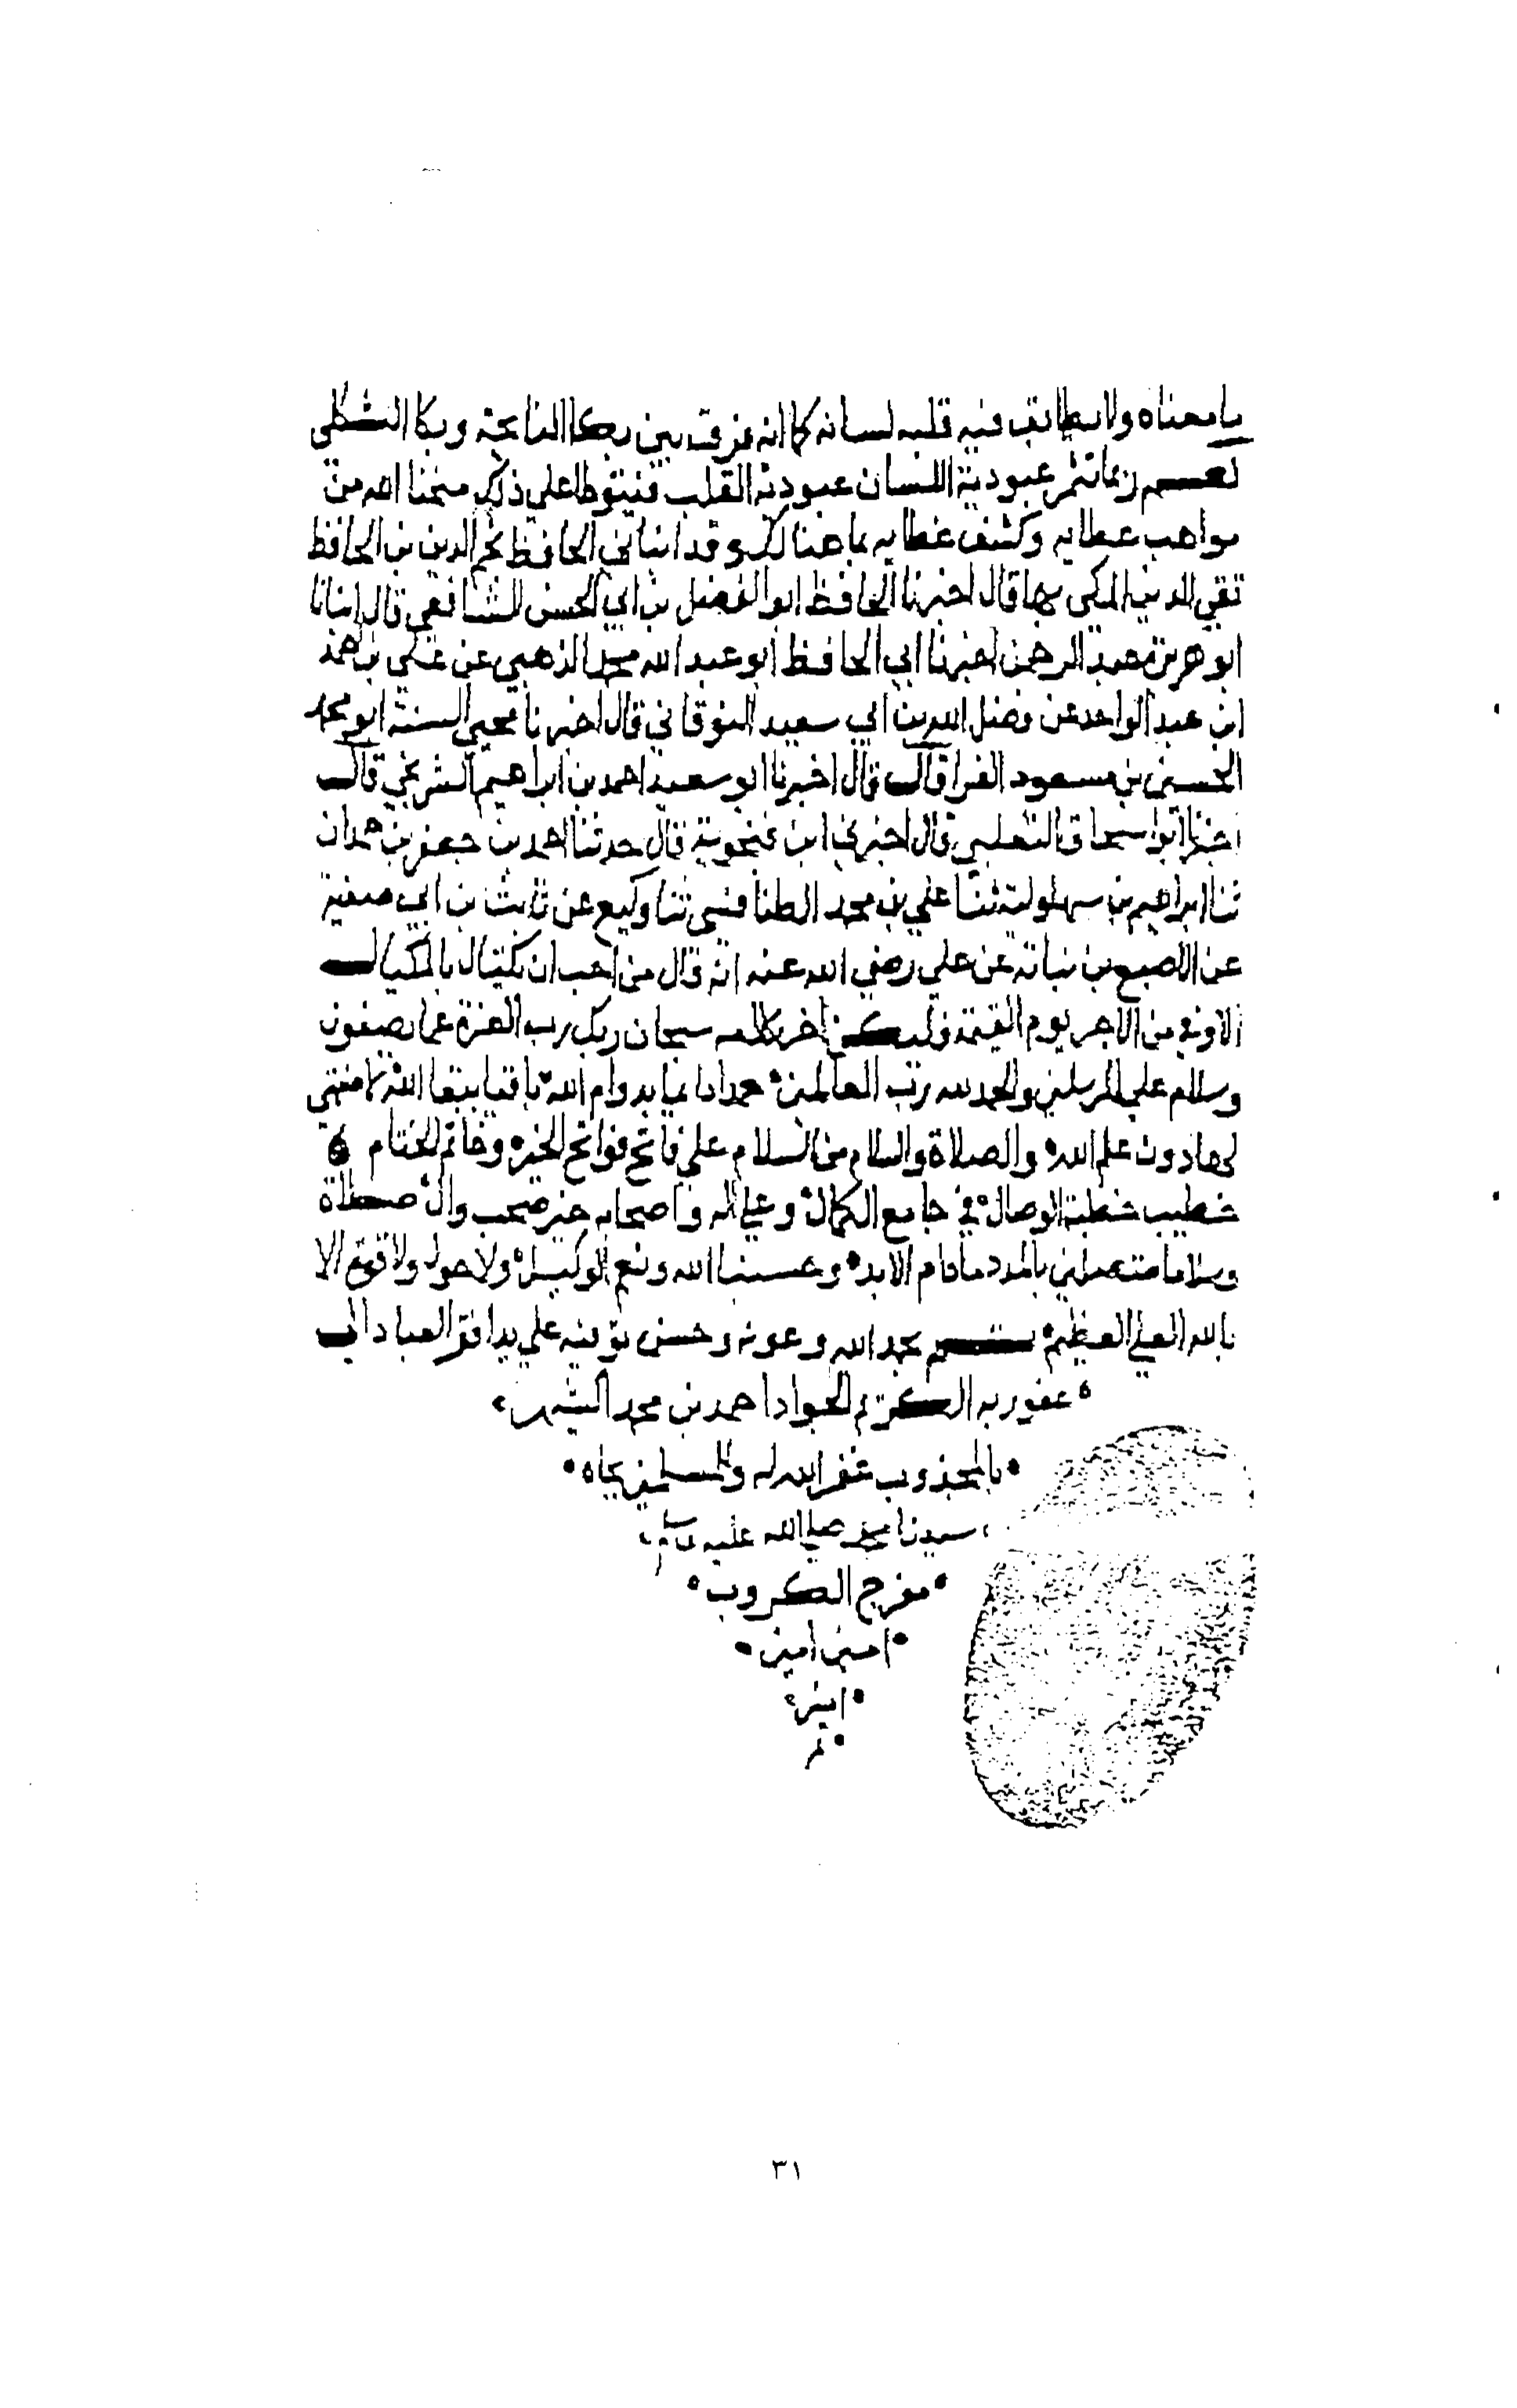 يا معناه ولا يطابق فيه قلبه لسانه كما انه فرق بين بكا النايحة وبكا الثكلى
نعم ربما تثمر عبودية اللسان عبودية القلب فيتوطا على ذلك منحنا الله من
مواهب عطايه وكشف غطايه بما هنالك وقد انباني الحافظ نجم الدين بن الحافظ
تقي الدين المكي بها قال اخبرنا الحافظ ابو الفضل بن ابي الحسن الشافعي قال انبانا
ابو هريرة عبد الرحمن اخبرنا ابي الحافظ ابو عبد الله محمد الذهبي عن علي بن احمد
ابن عبد الواحد عن فضل الله بن ابي سعيد النوقاني قال اخبرنا محيي السنة ابو محمد
الحسين بن مسعود الفرا قال قال اخبرنا ابو سعيد احمد بن ابراهيم الشريحي قال
اخبرنا ابو اسحاق الثعلبي قال اخبرني ابن فنجوية قال حدثنا احمد بن جعفر بن حمدان
ثنا ابراهيم بن سهلولة ثنا علي بن محمد الطنافسي ثنا وكيع عن ثابت بن ابي صفية
عن الاصبع بن نباته عن علي رضي الله عنه انه قال من احب ان يكتال بالمكيال
الاوفي من الاجر يوم القيمة فليكن اخر كلامه سبحان ربك رب العزة عما يصفون
وسلام علي المرسلين والحمد لله رب العالمين حمدا دايما بدوام الله باقيا ببقا الله لا منتهي
لها دون علم الله والصلاة والسلام من السلام علي فاتح فواتح الخير وخاتم الختام
خطيب خطبة الوصال في جامع الكمال وعلي اله واصحابه خير صحب وال صلاة
وسلاما متصلين بالمدد ما دام الابد وحسبنا الله ونعم الوكيل ولا حول ولا قوة الا
بالله العلي العظيم تم بحمد الله وعونه وحسن توفيقه علي يد افقر العباد الي
عفو ربه الكريم الجواد احمد بن محمد الشهير
بالمجذوب غفر الله له وللمسلمين بجاه
سيدنا محمد صلي الله عليه وسلم
مفرج الكروب
امين امين
امين
تم
٣١